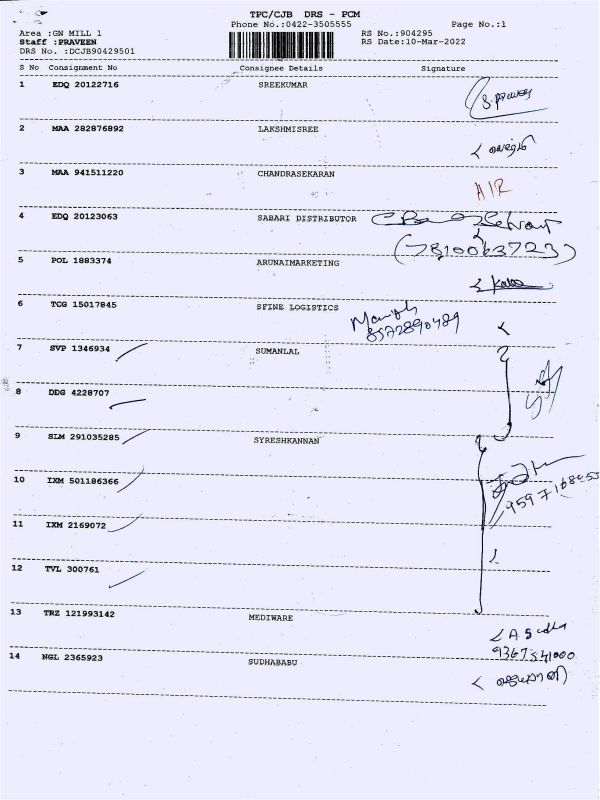 TPC/CJB DRS - PCM
Phone No.:0422-3505555 Page No.:1
Area :GN MILL 1 RS No.:904295
Staff :PRAVEEN RS Date:10-Mar-2022
DRS No. :DCJB90429501
S No Consignment No Consignee Details Signature
1 EDQ 20122716 SREEKUMAR
2 MAA 282876892 LAKSHMISREE
3 MAA 941511220 CHANDRASEKARAN
AIR
4 EDQ 20123063 SABARI DISTRIBUTOR
(7810063723)
5 POL 1883374 ARUNAIMARKETING
6 TCG 15017845 SFINE LOGISTICS
7 SVP 1346934 SUMANLAL
8 DDG 4228707
9 SLM 291035285 SYRESHKANNAN
10 IXM 501186366
11 IXM 2169072
12 TVL 300761
13 TRZ 121993142 MEDIWARE
14 NGL 2365923 SUDHABABU